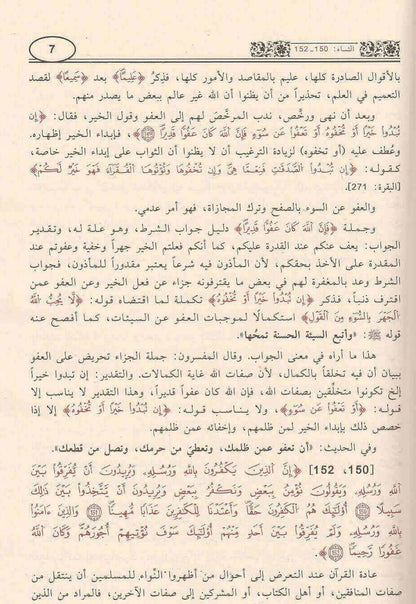 النساء: 150 ـ 152
7
بالأقوال الصادرة كلها، عليم بالمقاصد والأمور كلها، فذكر ﴿عَلِيمًا﴾ بعد ﴿سَمِيعًا﴾ لقصد
التعميم في العلم، تحذيراً من أن يظنوا أن الله غير عالم ببعض ما يصدر منهم.
وبعد أن نهى ورخّص، ندب المرخّص لهم إلى العفو وقول الخير، فقال: ﴿إِن
تُبْدُوا خَيْرًا أَوْ تُخْفُوهُ أَوْ تَعْفُوا عَن سُوٓءٍ فَإِنَّ ٱللَّهَ كَانَ عَفُوًّا قَدِيرًا ﴿١٤٩﴾﴾، فإبداء الخير إظهاره.
وعُطف عليه ﴿أو تخفوه﴾ لزيادة الترغيب أن لا يظنوا أن الثواب على إبداء الخير خاصة،
كقوله: ﴿إِن تُبْدُوا ٱلصَّدَقَٰتِ فَنِعِمَّا هِىَ وَإِن تُخْفُوهَا وَتُؤْتُوهَا ٱلْفُقَرَآءَ فَهُوَ خَيْرٌ لَّكُمْ﴾
[البقرة: 271].
والعفو عن السوء بالصفح وترك المجازاة، فهو أمر عدمي.
وجملة ﴿فَإِنَّ ٱللَّهَ كَانَ عَفُوًّا قَدِيرًا﴾ دليل جواب الشرط، وهو علة له، وتقدير
الجواب: يعف عنكم عند القدرة عليكم، كما أنكم فعلتم الخير جهراً وخفية وعفوتم عند
المقدرة على الأخذ بحقكم، لأن المأذون فيه شرعاً يعتبر مقدوراً للمأذون، فجواب
الشرط وعد بالمغفرة لهم في بعض ما يقترفونه جزاء عن فعل الخير وعن العفو عمن
اقترف ذنباً، فذكر ﴿إِن تُبْدُوا خَيْرًا أَوْ تُخْفُوهُ﴾ تكملة لما اقتضاه قوله: ﴿لَّا يُحِبُّ ٱللَّهُ
ٱلْجَهْرَ بِٱلسُّوٓءِ مِنَ ٱلْقَوْلِ﴾ استكمالاً لموجبات العفو عن السيئات، كما أفصح عنه
قوله ﷺ: «وأتبع السيئة الحسنة تمحُها».
هذا ما أراه في معنى الجواب. وقال المفسرون: جملة الجزاء تحريض على العفو
ببيان أن فيه تخلقاً بالكمال، لأن صفات الله غاية الكمالات. والتقدير: إن تبدوا خيراً
إلخ تكونوا متخلّقين بصفات الله، فإن الله كان عفواً قديراً، وهذا التقدير لا يناسب إلا
قوله: ﴿أَوْ تَعْفُوا عَن سُوٓءٍ﴾، ولا يناسب قوله: ﴿إِن تُبْدُوا خَيْرًا أَوْ تُخْفُوهُ﴾ إلا إذا
خصص ذلك بإبداء الخير لمن ظلمهم، وإخفائه عمن ظلمهم.
وفي الحديث: «أن تعفو عمن ظلمك، وتعطيَ من حرمك، وتصل من قطعك».
[150، 152] ﴿إِنَّ ٱلَّذِينَ يَكْفُرُونَ بِٱللَّهِ وَرُسُلِهِۦ وَيُرِيدُونَ أَن يُفَرِّقُوا بَيْنَ
ٱللَّهِ وَرُسُلِهِۦ وَيَقُولُونَ نُؤْمِنُ بِبَعْضٍ وَنَكْفُرُ بِبَعْضٍ وَيُرِيدُونَ أَن يَتَّخِذُوا بَيْنَ ذَٰلِكَ
سَبِيلًا ﴿١٥٠﴾ أُو۟لَٰٓئِكَ هُمُ ٱلْكَٰفِرُونَ حَقًّا وَأَعْتَدْنَا لِلْكَٰفِرِينَ عَذَابًا مُّهِينًا ﴿١٥١﴾ وَٱلَّذِينَ ءَامَنُوا
بِٱللَّهِ وَرُسُلِهِۦ وَلَمْ يُفَرِّقُوا بَيْنَ أَحَدٍ مِّنْهُمْ أُو۟لَٰٓئِكَ سَوْفَ نُؤْتِيهِمْ أُجُورَهُمْ وَكَانَ ٱللَّهُ
غَفُورًا رَّحِيمًا ﴿١٥٢﴾﴾.
عادة القرآن عند التعرض إلى أحوال من أظهروا النِّواء للمسلمين أن ينتقل من
صفات المنافقين، أو أهل الكتاب، أو المشركين إلى صفات الآخرين، فالمراد من الذين